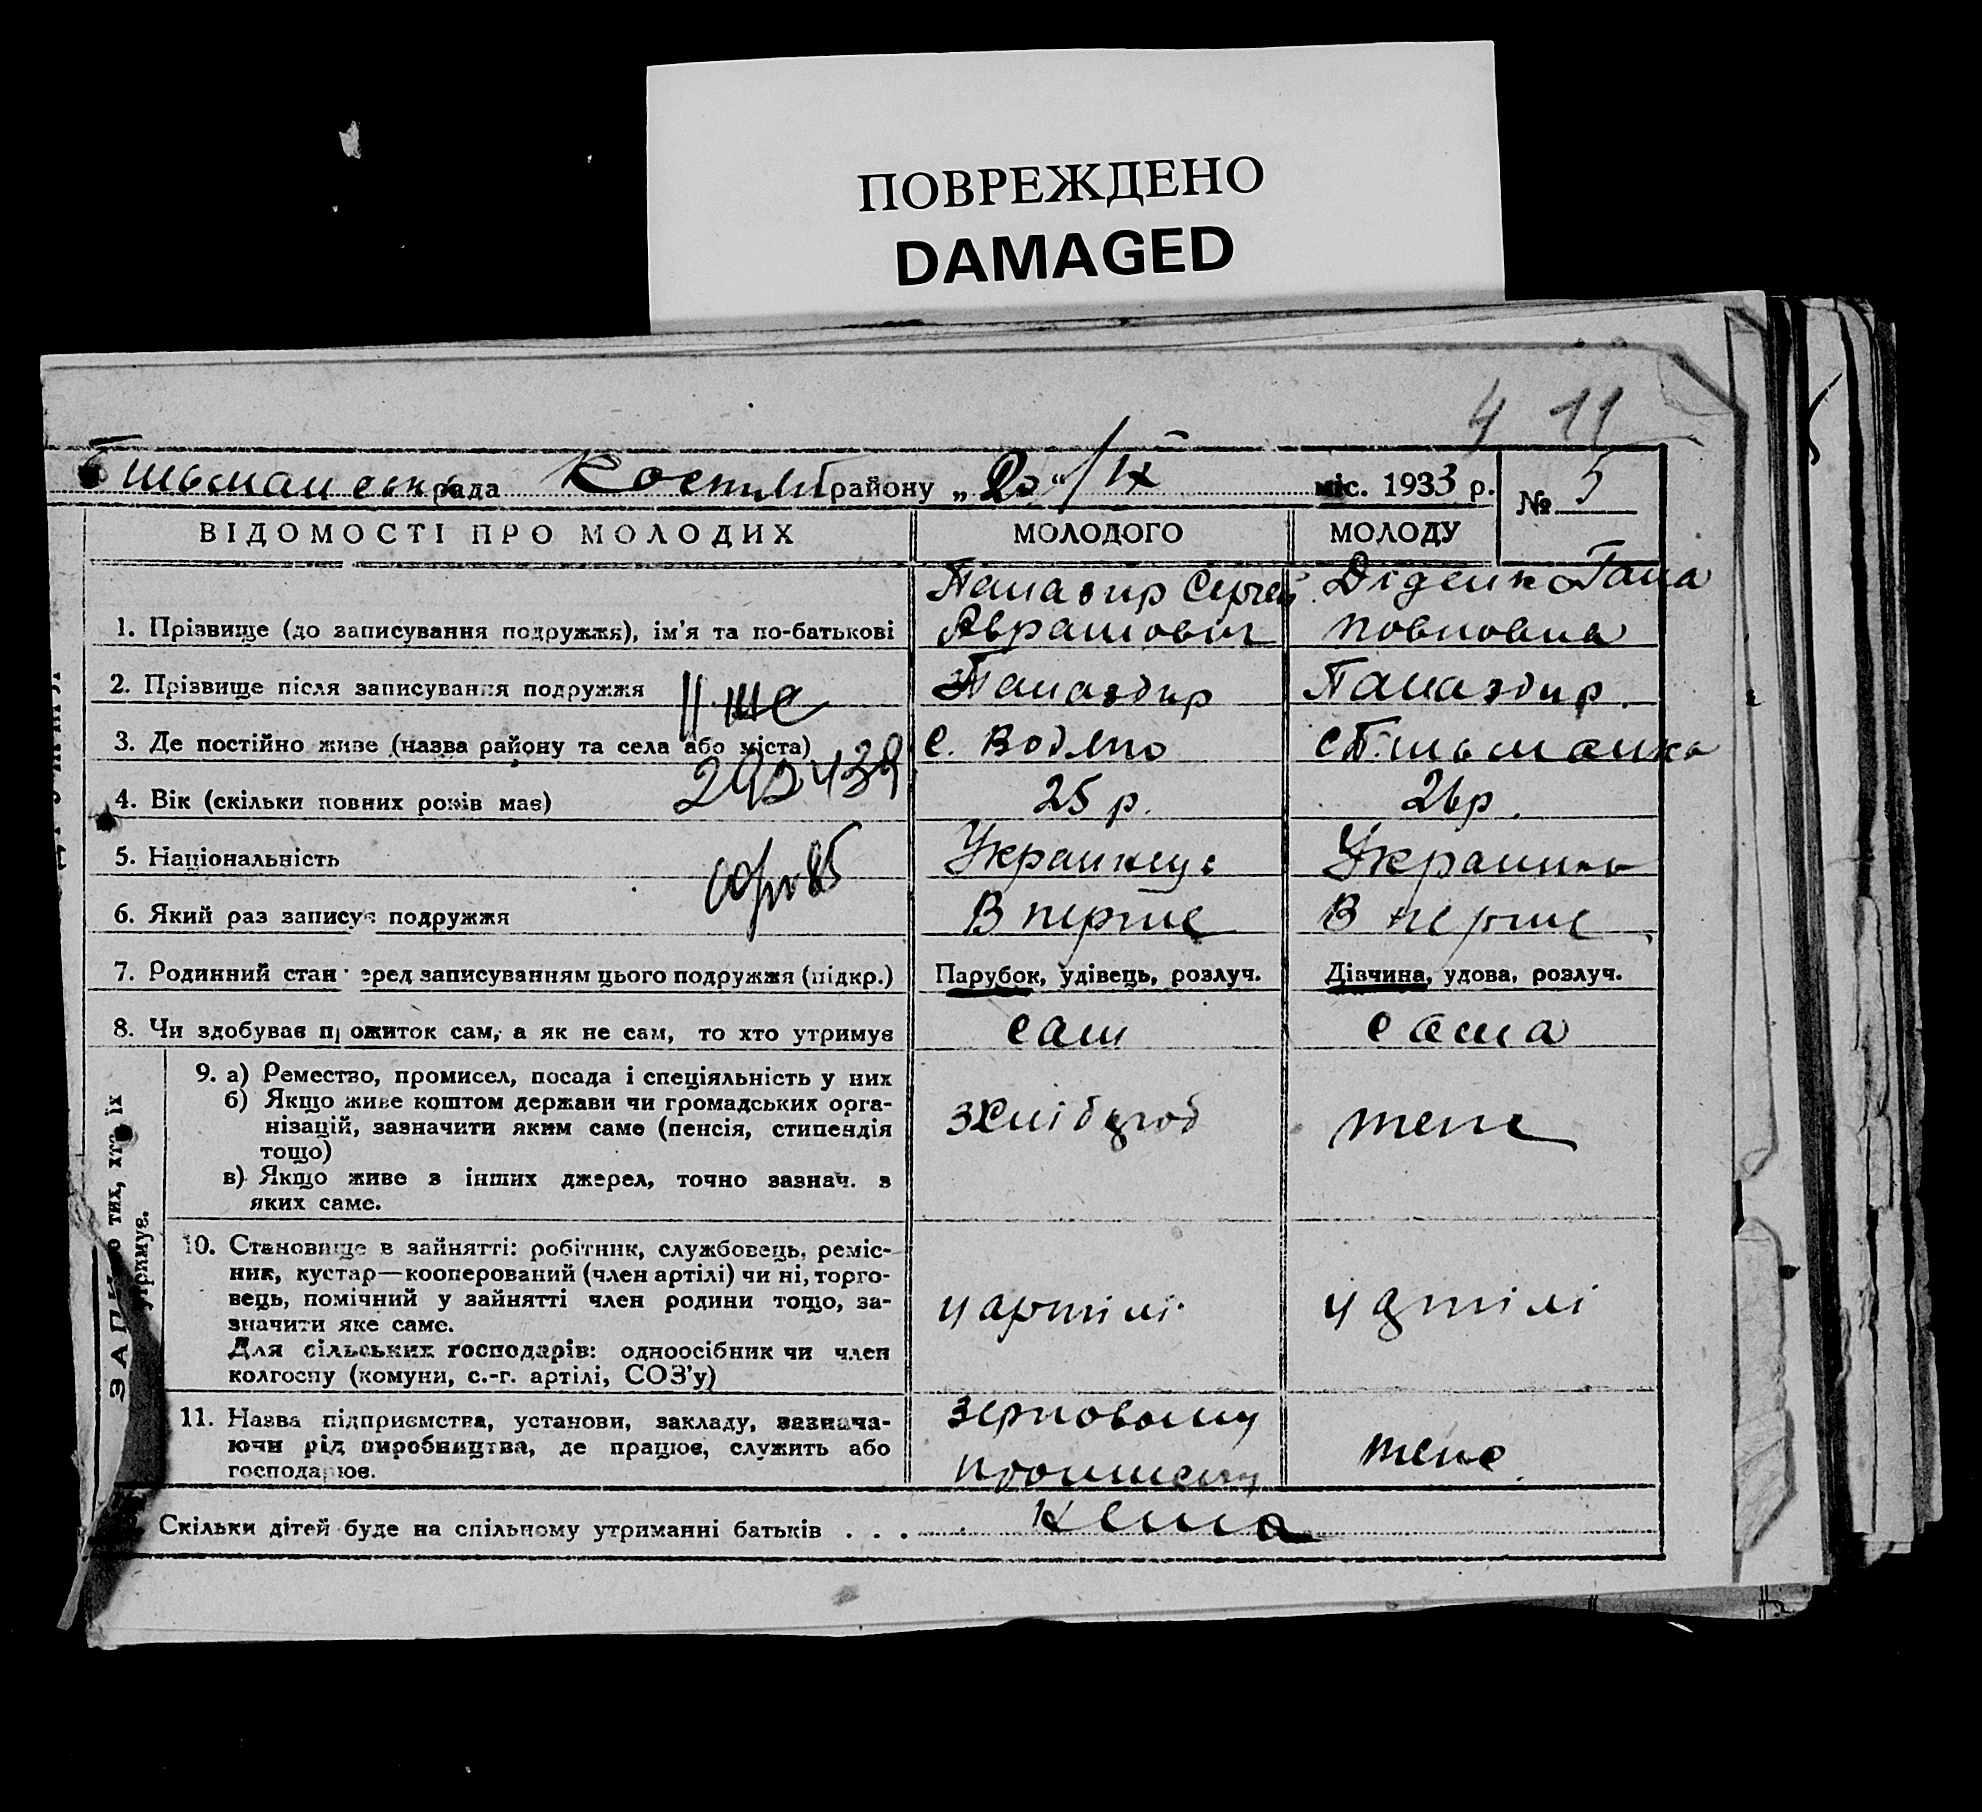 ПОВРЕЖДЕНО
DAMAGED
4 11
рада району „20“/IX міс. 1933 р. № 5
ВІДОМОСТІ ПРО МОЛОДИХ МОЛОДОГО МОЛОДУ
Сергей Діденко Гана
1. Прізвище (до записування подружжя), ім'я та по-батькові Аврамович
2. Прізвище після записування подружжя
3. Де постійно живе (назва району та села або міста) с. Водяно
4. Вік (скільки повних років має) 25 р. 26 р.
5. Національність
6. Який раз записує подружжя В перше В перше
7. Родинний стан перед записуванням цього подружжя (підкр.) Парубок, удівець, розлуч. Дівчина, удова, розлуч.
8. Чи здобував прожиток сам, а як не сам, то хто утримує сам сама
ЗАПИС про тих, хто їх
утримує.
9. а) Ремество, промисел, посада і спеціяльність у них
б) Якщо живе коштом держави чи громадських орга-
нізацій, зазначити яким саме (пенсія, стипендія
тощо)
в) Якщо живе з інших джерел, точно зазнач. з
яких саме.
10. Становище в зайнятті: робітник, службовець, реміс-
ник, кустар—кооперований (член артілі) чи ні, торго-
вець, помічний у зайнятті член родини тощо, за-
значити яке саме.
Для сільських господарів: одноосібник чи член
колгоспу (комуни, с.-г. артілі, СОЗ'у)
у артілі у артілі
11. Назва підприємства, установи, закладу, зазнача-
ючи рід виробництва, де працює, служить або
господарює.
зерновому
Скільки дітей буде на спільному утриманні батьків . . . нема